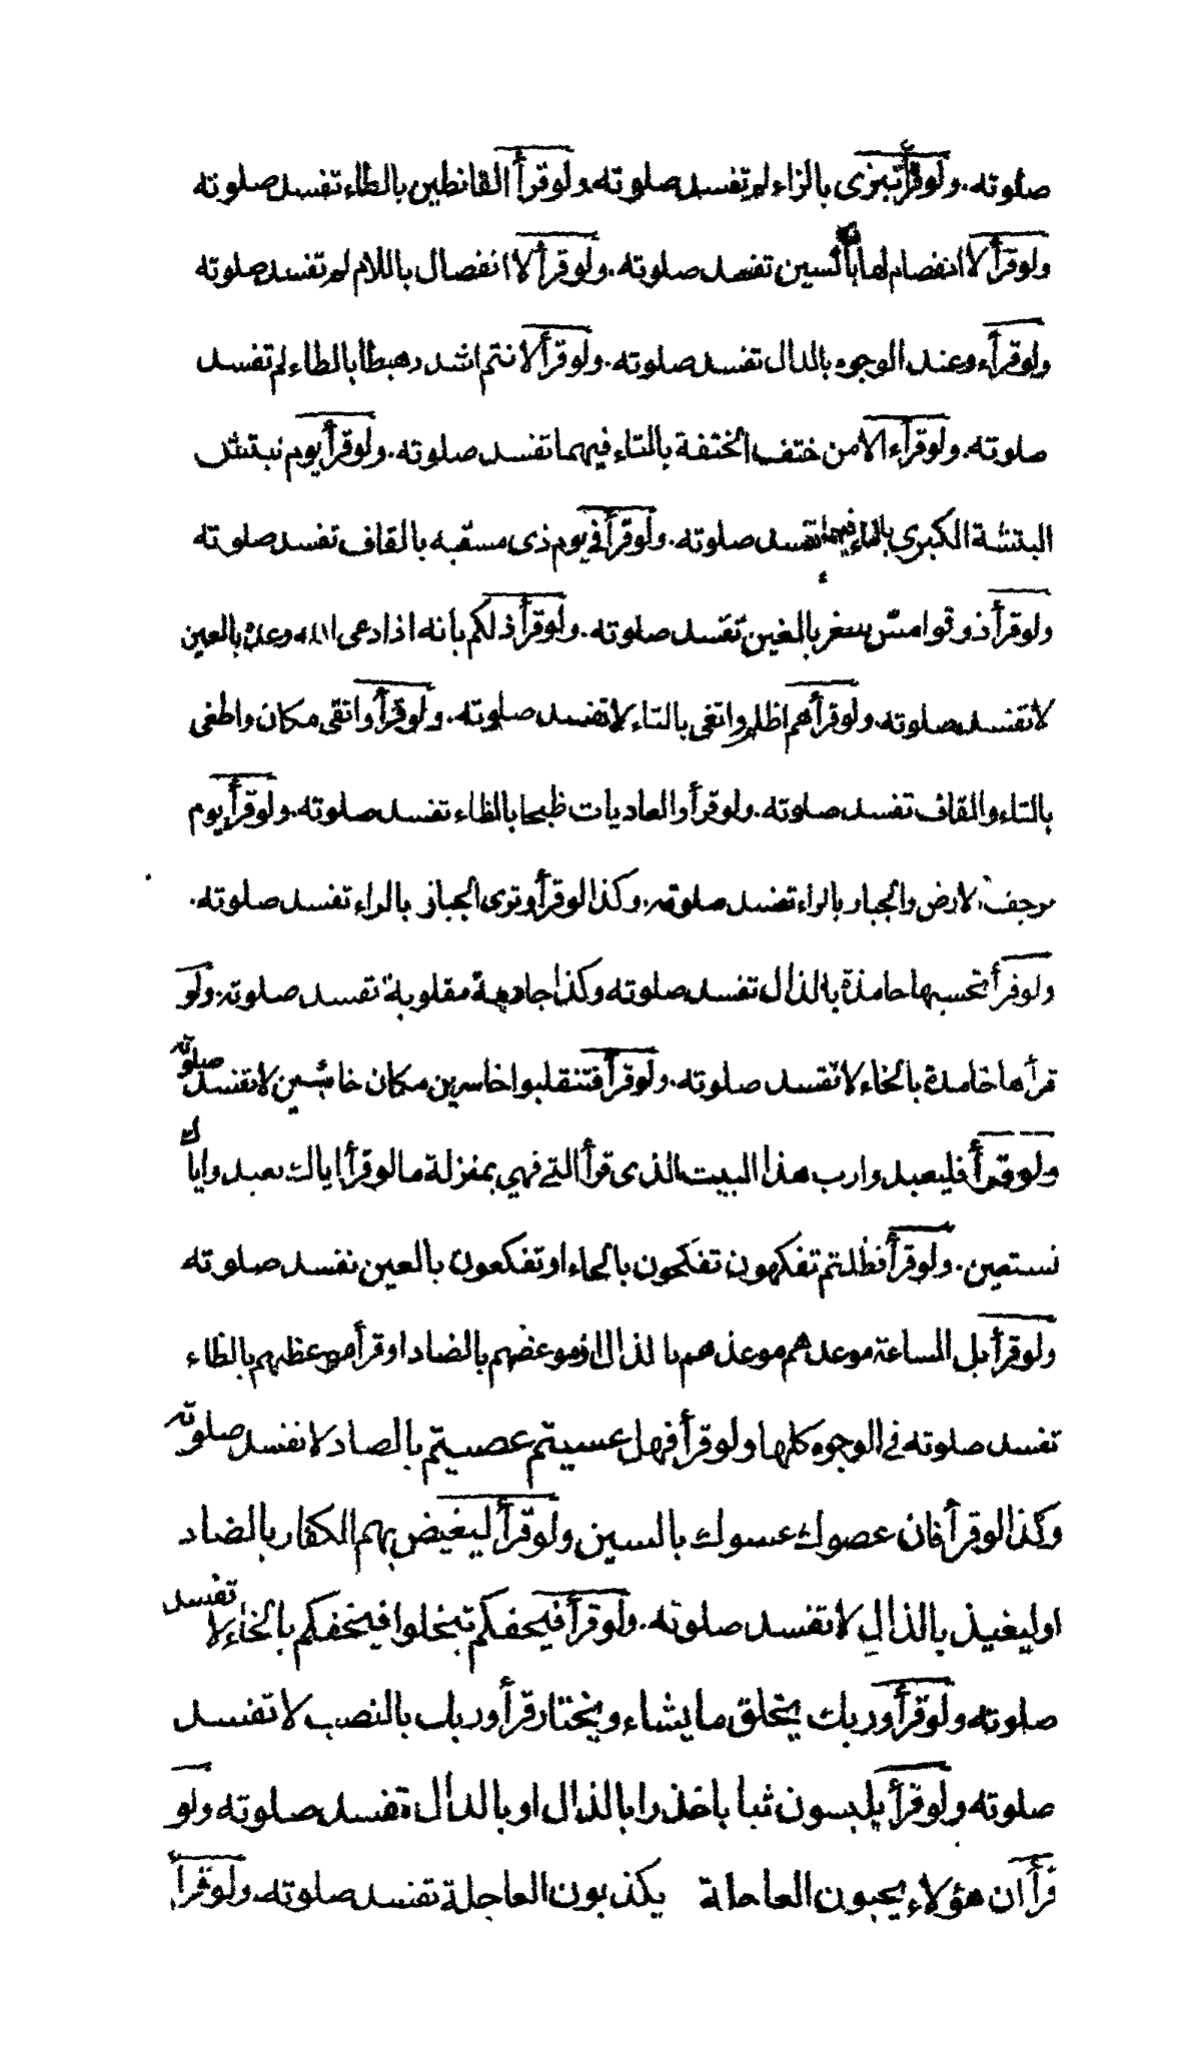 صلوته. ولو قرأ تبزى بالزاء لم تفسد صلوته. ولو قرأ القانطين بالطاء تفسد صلوته
ولو قرأ لا انفصام لها بالسين تفسد صلوته. ولو قرأ لا انفصال باللام لم تفسد صلوته
ولو قرأ وعند الوجوه بالدال تفسد صلوته. ولو قرأ لانتم اشد رهبطا بالطاء لم تفسد
صلوته. ولو قرأ الا من ختف الختفة بالتاء فيهما تفسد صلوته. ولو قرأ يوم نبتش
البتشة الكبرى بالتاء فيهما تفسد صلوته. ولو قرأ في يوم ذى مسقبه بالقاف تفسد صلوته
ولو قرأ ذوقوا مس سغر بالغين تفسد صلوته. ولو قرأ ذلكم بانه اذا دعى الله وعده بالعين
لا تفسد صلوته. ولو قرأ هم اظلم واتغى بالتاء لا تفسد صلوته. ولو قرأ واتقى مكان واطغى
بالتاء والقاف تفسد صلوته. ولو قرأ والعاديات ظبحا بالظاء تفسد صلوته. ولو قرأ يوم
ترجف الارض والجبار بالراء تفسد صلوته. وكذا لو قرأ وترى الجباز بالراء تفسد صلوته.
ولو قرأ تحسبها حامذة بالذال تفسد صلوته وكذا جادمة مقلوبة تفسد صلوته. ولو
قرأها خامدة بالخاء لا تفسد صلوته. ولو قرأ فتنقلبوا خاسرين مكان خاسئين لا تفسد صلوته
ولو قرأ فليعبدوا رب هذا البيت الذى قرأ التي فهي بمنزلة ما لو قرأ اياك نعبد واياك
نستعين. ولو قرأ فظلتم تفكهون تفكحون بالحاء او تفكعون بالعين تفسد صلوته
ولو قرأ بل الساعة موعدهم موعذهم بالذال او موعضهم بالضاد او قرأ موعظهم بالظاء
تفسد صلوته في الوجوه كلها ولو قرأ فهل عسيتم عصيتم بالصاد لا تفسد صلوته
وكذا لو قرأ فان عصوك عسوك بالسين ولو قرأ ليغيض بهم الكفار بالضاد
او ليغيذ بالذال لا تفسد صلوته. ولو قرأ فيحفكم تبخلوا فيخفكم بالخاء لا تفسد
صلوته ولو قرأ وربك يخلق ما يشاء ويختار قرأ وربك بالنصب لا تفسد
صلوته ولو قرأ يلبسون ثيابا خذرا بالذال او بالدال تفسد صلوته ولو
قرأ ان هؤلاء يحبون العاجلة يكذبون العاجلة تفسد صلوته. ولو قرأ